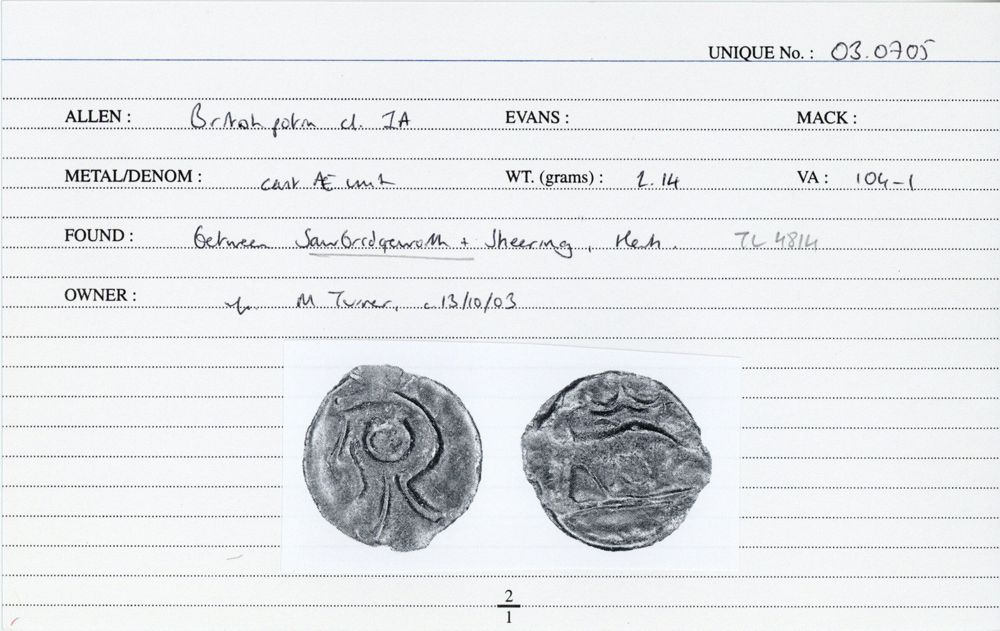 UNIQUE No. : 03.0705
ALLEN : British potin cl. IA EVANS : MACK :
METAL/DENOM : cast Æ unit WT. (grams) : 2.14 VA : 104-1
FOUND : between Sawbridgeworth + Sheering, Herts. TL 4814
OWNER : M Turner, 13/10/03
2
1